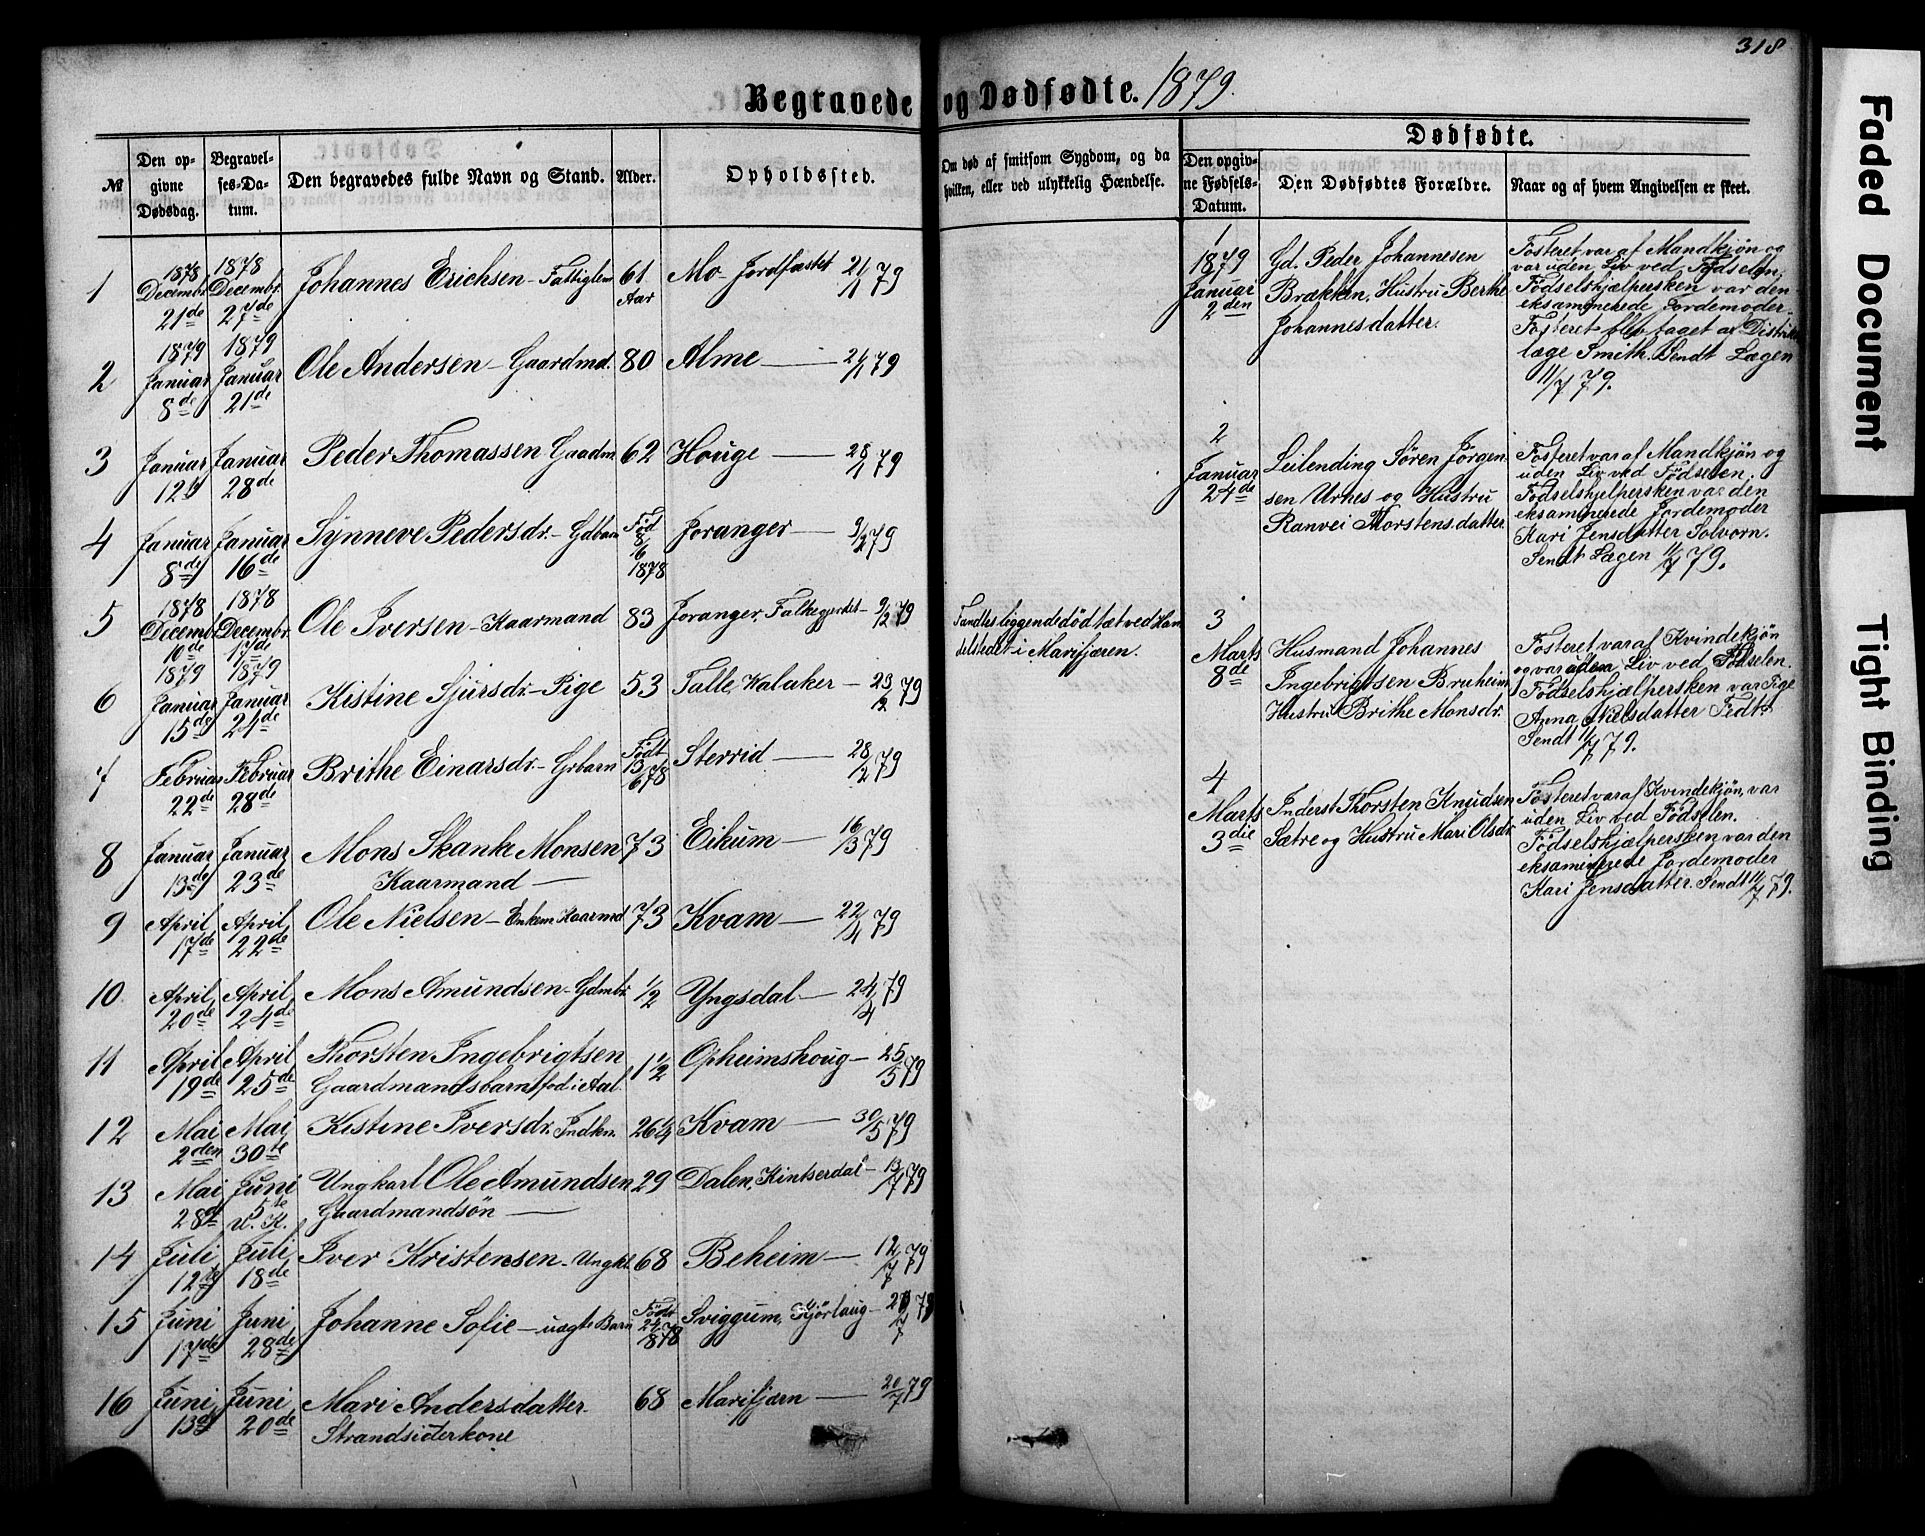 318
Begravede og Dødfødte. 1879.
№
Den opgivne Dødsdag.
Begravelses-Datum.
Den begravedes fulde Navn og Stand.
Alder.
Opholdssted.
Om død af smitsom Sygdom, og da hvilken, eller ved ulykkelig Hændelse.
Dødfødte.
Den opgivne Fødsels-Datum.
Den Dødfødtes Forældre.
Naar og af hvem Angivelsen er skeet.
1 1878 Decembr. 21de 1878 Decembr. 27de Johannes Erichsen - Fattiglem 61 Aar Mo - Jordfæstet 21/1 79
2 1879 Januar 8de 1879 Januar 21de Ole Andersen - Gaardmd. 80 Alme 21/1 79
3 Januar 12te Januar 28de Peder Thomassen Gaadm 62 Houge 28/1 79
4 Januar 8de Januar 16de Synneve Pedersdr. - Gdbarn Fød 8/6 1878 Joranger 9/2 79
5 1878 Decembr. 10de 1878 Decembr. 17de Ole Iversen - Kaarmand 83 Joranger, Falkegjerdet - 9/2 79
Fandtes liggende død tæt ved Han
delstedet i Marifjæren.
6 1879 Januar 15de 1879 Januar 24de Kistine Sjursdr. - Pige 53 Talle, Kalaker - 23/2 79
7 Februar 22de Februar 28de Brithe Einarsdr. - Grbarn Født 13/6 78 Sterrid 28/2 79
8 Januar 13de Januar 23de Mons Skank Monsen 73 Eikum 16/3 79
Kaarmand
9 April 17de April 22de Ole Nielsen - Enkem. Kaarmd 73 Kvam 22/4 79
10 April 20de April 24de Mons Amundsen - Gdmbr. 1/2 Yngsdal 24/4 79
11 April 19de April 25de Thorsten Ingebrigtsen 1 1/2 Opheimshoug 25/5 79
Gaardmandsbarn fød i Aal.
12 Mai 2den Mai 30te Kistine Iversdr. Indkn. 26 1/4 Kvam 30/5 79
13 Mai 28de Juni 5te U. K. Ungkarl Ole Amundsen 29 Dalen, Kintserdal - 13/7 79
Gaardmandsøn
14 Juli 12te Juli 18de Iver Kristensen - Ungkl. 68 Beheim 12/7 79
15 Juni 17de Juni 28de Johanne Sofie - uægte Barn Født 24/8 78 Sviggum, Kjørlaug - /7 79
16 Juni 13de Juni 20de Mari Andersdatter. 68 Marifjærn 20/7 79
Strandsiderkone
1
1879 Januar 2den
Gd. Peder Johannesen
Brækken, Hustru Berthe
Johannesdatter.
Fosteret var af Mandkjøn og
var uden Liv ved Fødselen,
Fødselshjælpersken var den
eksaminerede Jordemoder -
Fosteret blev taget af Distrikts
læge Smith. Sendt Lægen
11/7 79.
2
Januar 24de
Leilending Søren Jørgen
sen Urnes og Hustru
Ranvei Thorstensdatter
Fosteret var af Mandkjøn og
uden Liv ved Fødselen.
Fødselshjelpersken var den
eksaminerede Jordemoder
Kari Jensdatter Solvorn.
Sendt Lægen 11/7 79.
3
Marts 8de
Husmand Johannes
Ingebrigtsen Bruheim
Hustru Brithe Monsdr.
Fosteret var af Kvindekjøn
og var uden Liv ved Fødselen.
Fødselshjælpersken var Pige
Anna Nielsdatter Fedt.
Sendt 11/7 79.
4
Marts 3die
Inderst Thorsten Knudsen
Sætre og Hustru Mari Olsdr.
Fosteret var af Kvindekjøn, var
uden Liv ved Fødselen.
Fødselshjælpersken var den
eksaminerede Jordemoder
Kari Jensdatter. Sendt 11/7 79.
Faded Document
Tight Binding